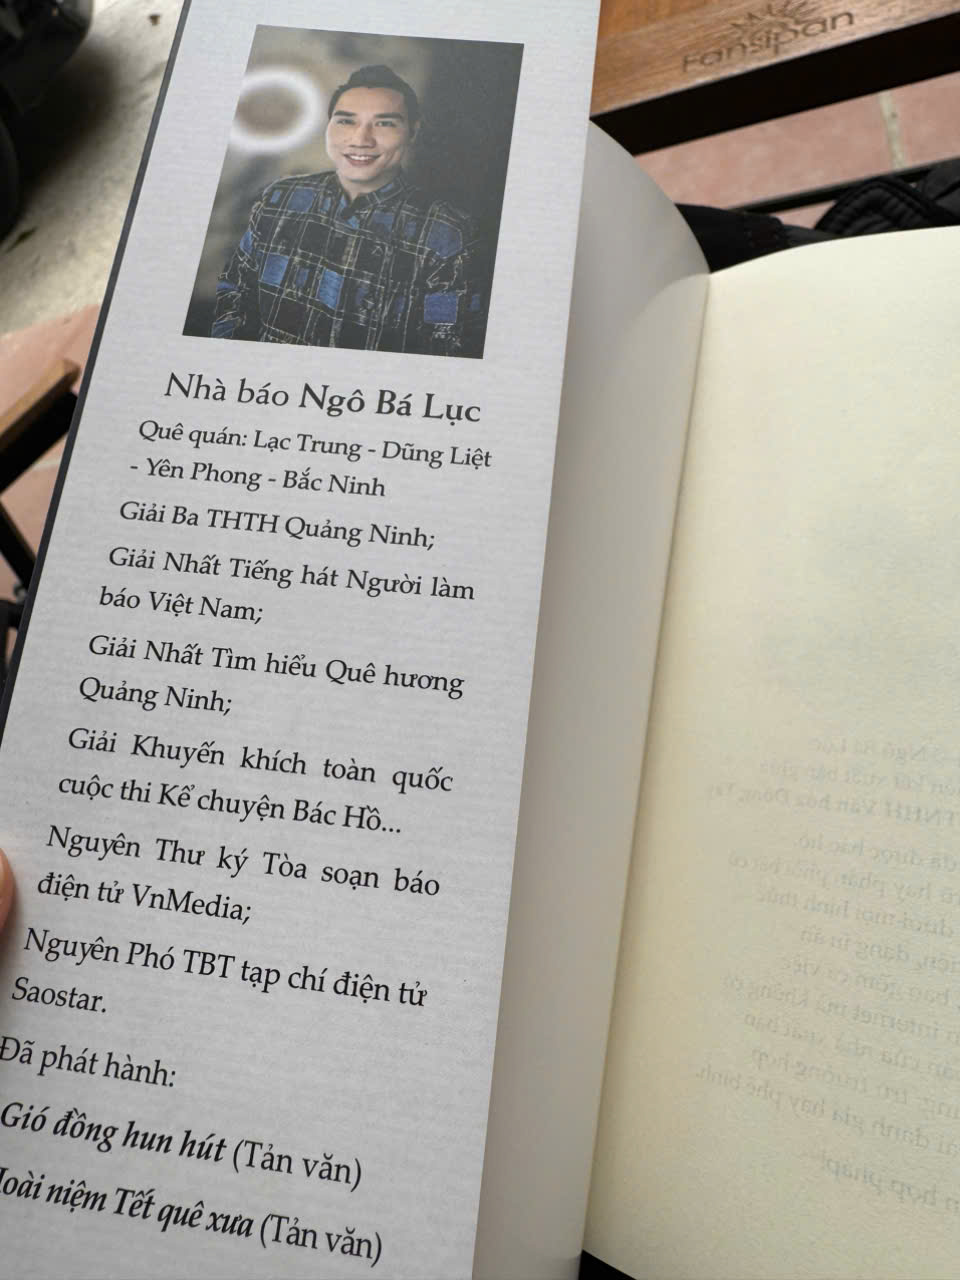 Fansipan
Nhà báo Ngô Bá Lục
Quê quán: Lạc Trung - Dũng Liệt
- Yên Phong - Bắc Ninh
Giải Ba THTH Quảng Ninh;
Giải Nhất Tiếng hát Người làm
báo Việt Nam;
Giải Nhất Tìm hiểu Quê hương
Quảng Ninh;
Giải Khuyến khích toàn quốc
cuộc thi Kể chuyện Bác Hồ...
Nguyên Thư ký Tòa soạn báo
điện tử VnMedia;
Nguyên Phó TBT tạp chí điện tử
Saostar.
Đã phát hành:
Gió đồng hun hút (Tản văn)
niệm Tết quê xưa (Tản văn)